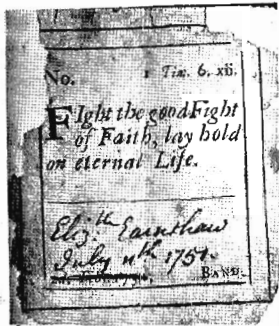 No. 1 Tim. 6. xii.
FIght the good Fight
of Faith, lay hold
on eternal Life.
Eliz.th Earnshaw
July 11th 1751.
BAND.